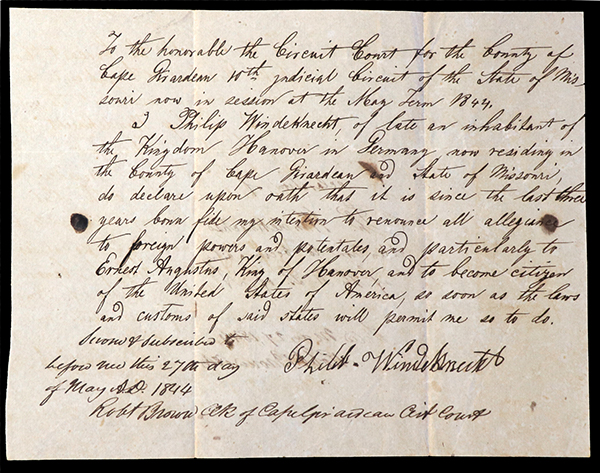 To the honorable the Circuit Court for the County of
Cape Girardeau 10th judicial Circuit of the State of Mis-
souri now in session at the May Term 1844,
I Philip Windeknecht, of late an inhabitant of
the Kingdom Hanover in Germany now residing in
the County of Cape Girardeau and State of Missouri,
do declare upon oath that it is since the last three
years bona fide my intention to renounce all allegiance
to foreign powers and potentates, and particularly to
Ernest Augustus, King of Hanover, and to become citizen
of the United States of America, so soon as the laws
and customs of said states will permit me so to do.
Sworn & Subscribed to
before me this 27th day
of May A.D. 1844
Philip Windeknecht
Robt Brown Clk of Cape Girardeau Cirt Court